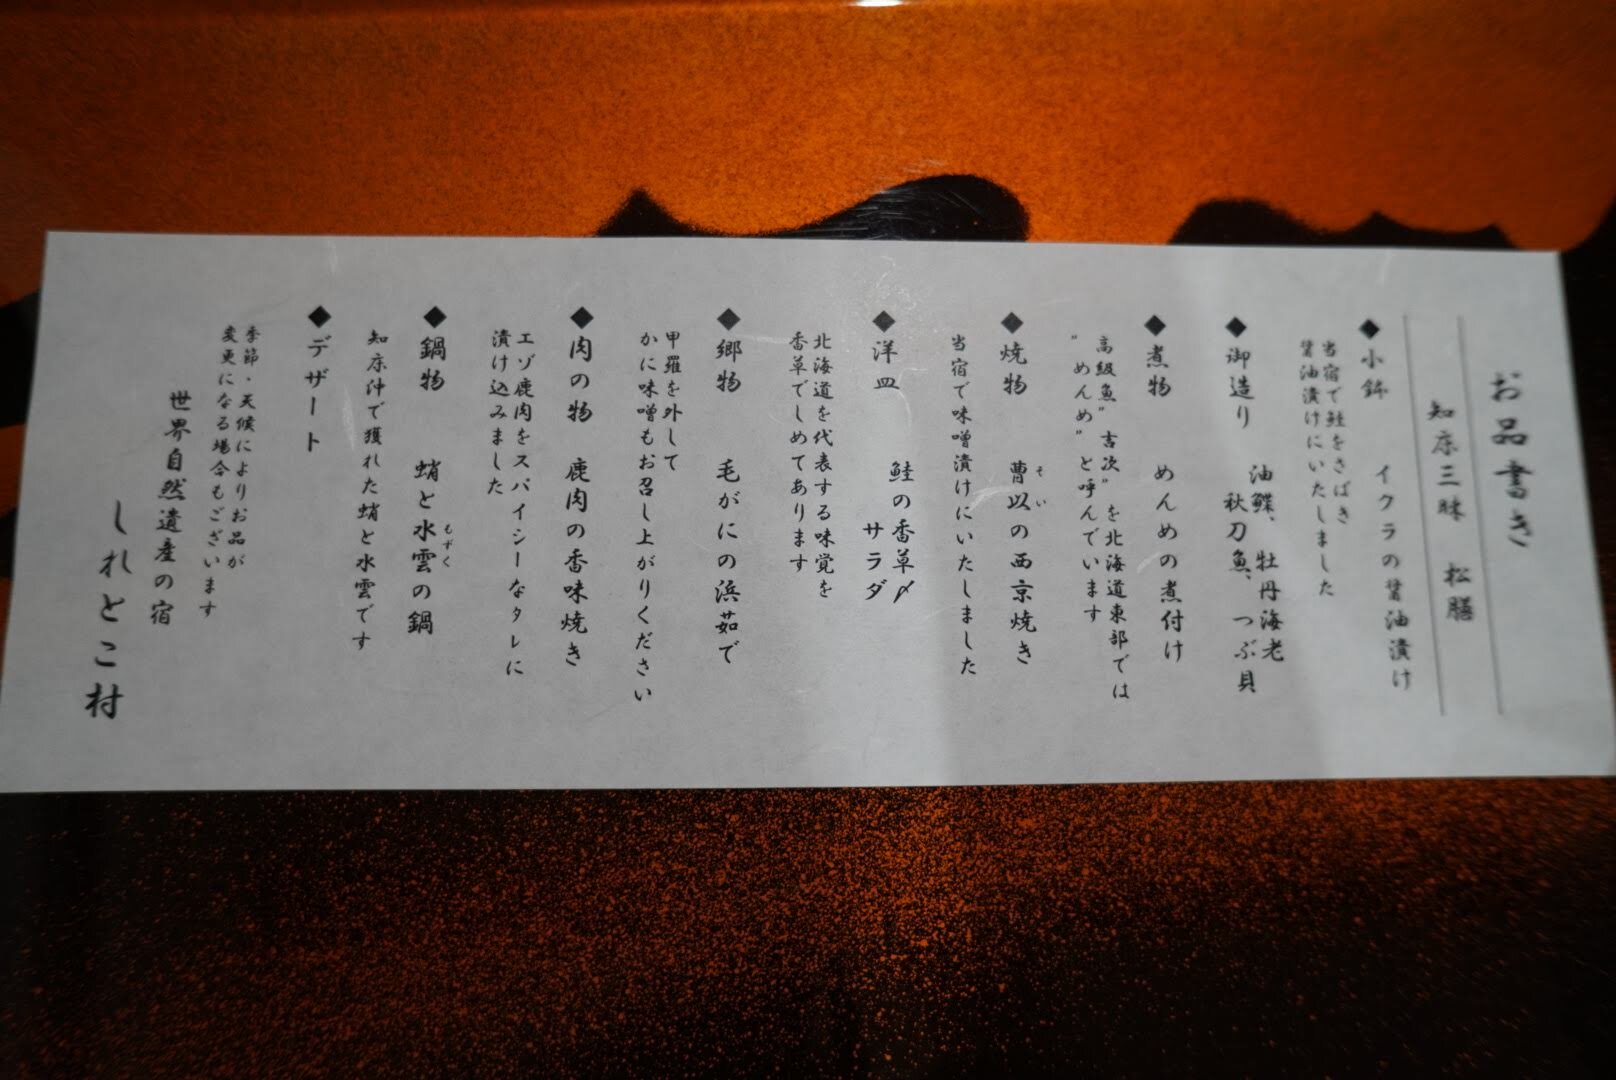 お品書き
知床三昧　松膳
◆小鉢　イクラの醤油漬け
当宿で鮭をさばき
醤油漬けにいたしました
◆御造り　油鰈、牡丹海老
秋刀魚、つぶ貝
◆煮物　めんめの煮付け
高級魚”吉次”を北海道東部では
”めんめ”と呼んでいます
◆焼物　曹以の西京焼き
そい
当宿で味噌漬けにいたしました
◆洋皿　鮭の香草〆
サラダ
北海道を代表する味覚を
香草でしめてあります
◆郷物　毛がにの浜茹で
甲羅を外して
かに味噌もお召し上がりください
◆肉の物　鹿肉の香味焼き
エゾ鹿肉をスパイシーなタレに
漬け込みました
◆鍋物　蛸と水雲の鍋
もずく
知床沖で獲れた蛸と水雲です
◆デザート
季節・天候によりお品が
変更になる場合もございます
世界自然遺産の宿
しれとこ村